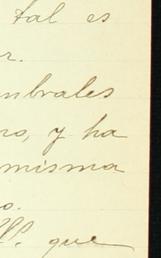 tal es
r.
mbrales
no, y ha
misma
o.
V. que